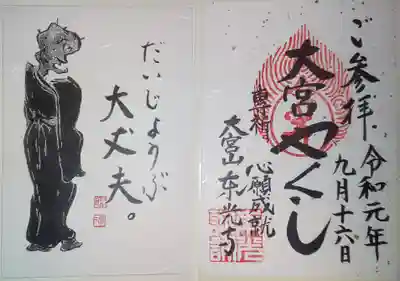 だいじょうぶ
大丈夫。
ご参拝
令和元年
九月十六日
大宮やくし
専祈
心願成就
大宮山东光寺